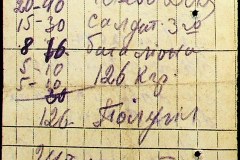 20-40
15-30 салдат 3го
8 16 баталиона
5-10 126 кгр.
5-10
30
126- Получил